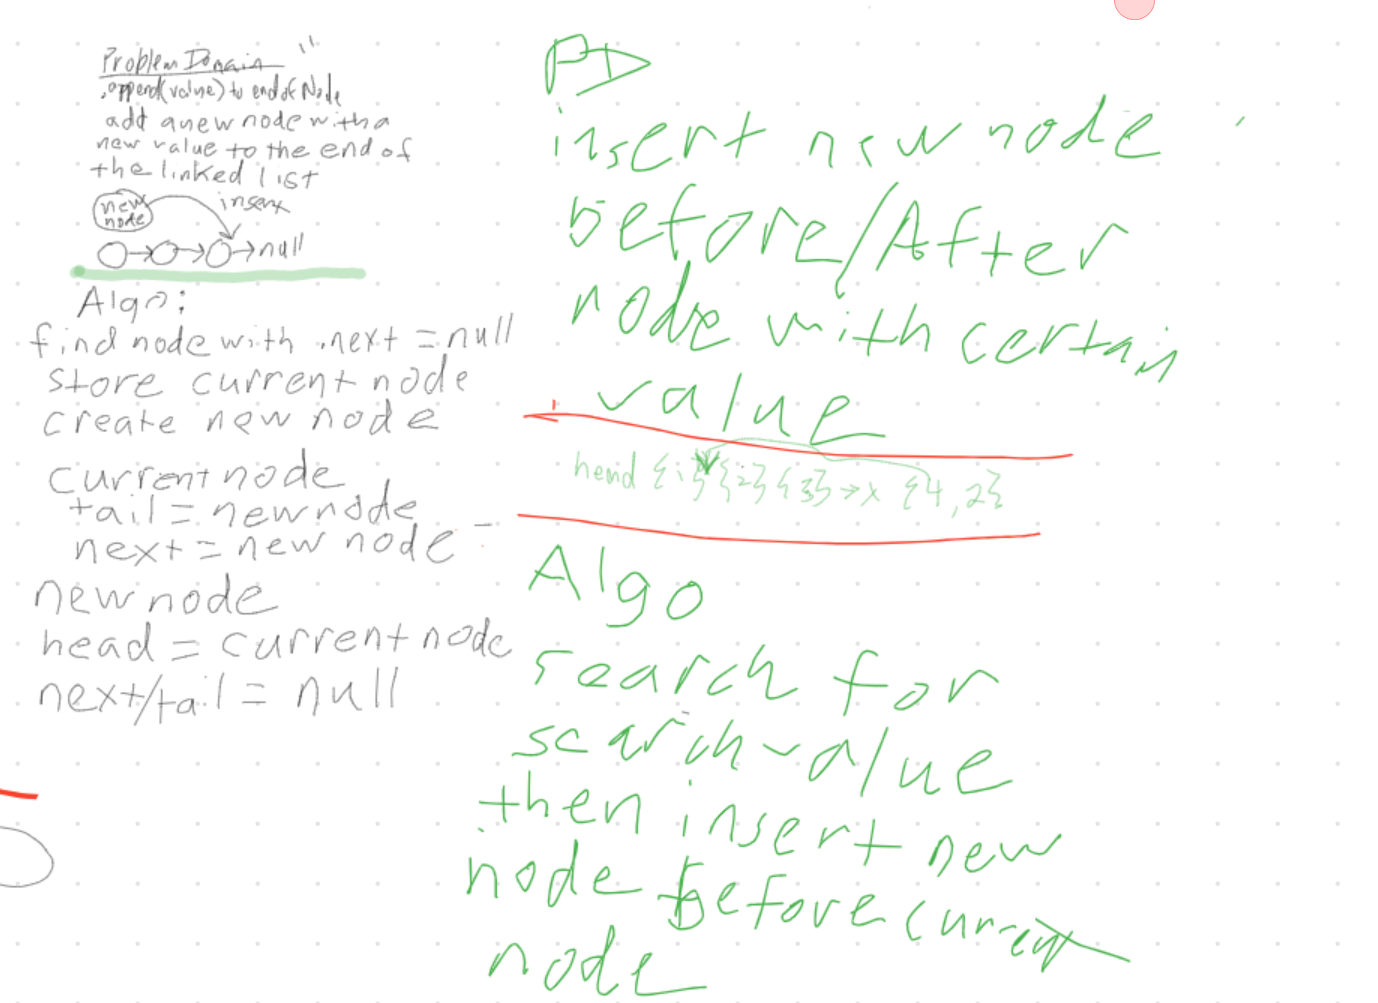 Problem Domain
.append(value) to end of Node
add a new node with a
new value to the end of
the linked list
new
node
insert
null
Algo:
find node with .next = null
store current node
create new node
current node
tail = new node
next = new node
new node
head = current node
next/tail = null
PD
insert new node
before/After
node with certain
value
head {1}{2}{3}→x {4,2}
Algo
search for
search value
then insert new
node before current
node